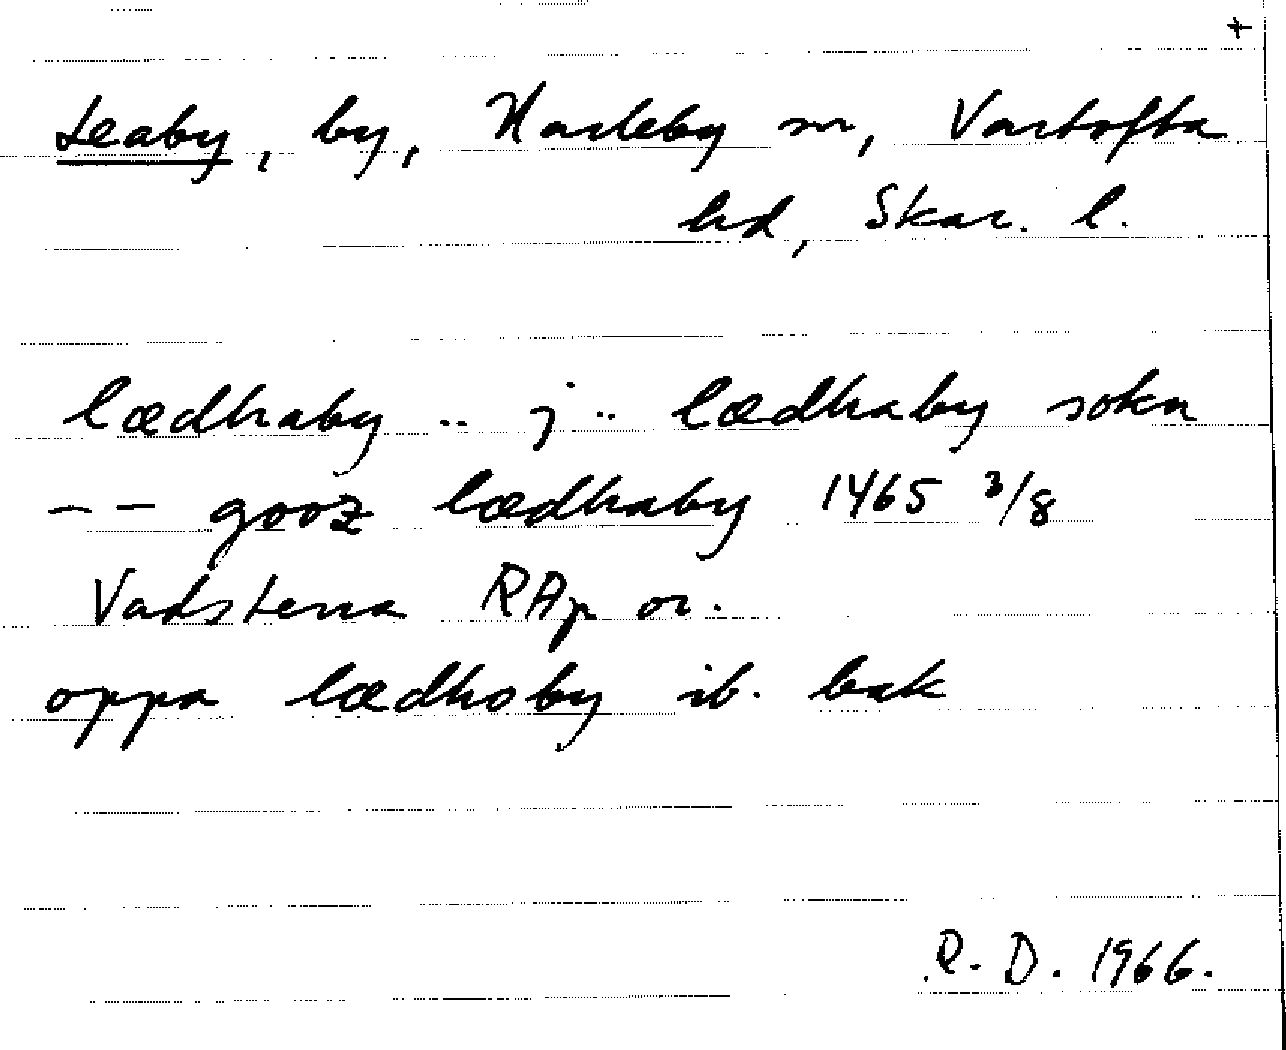 +
Leaby, by, Karleby sn, Vartofta
hd, Skar. l.
lædhaby .. j .. lædhaby sokn
-- gooz lædhaby 1465 3/8
Vadstena RAp or.
oppa lædhoby ib. bak
R. D. 1966.